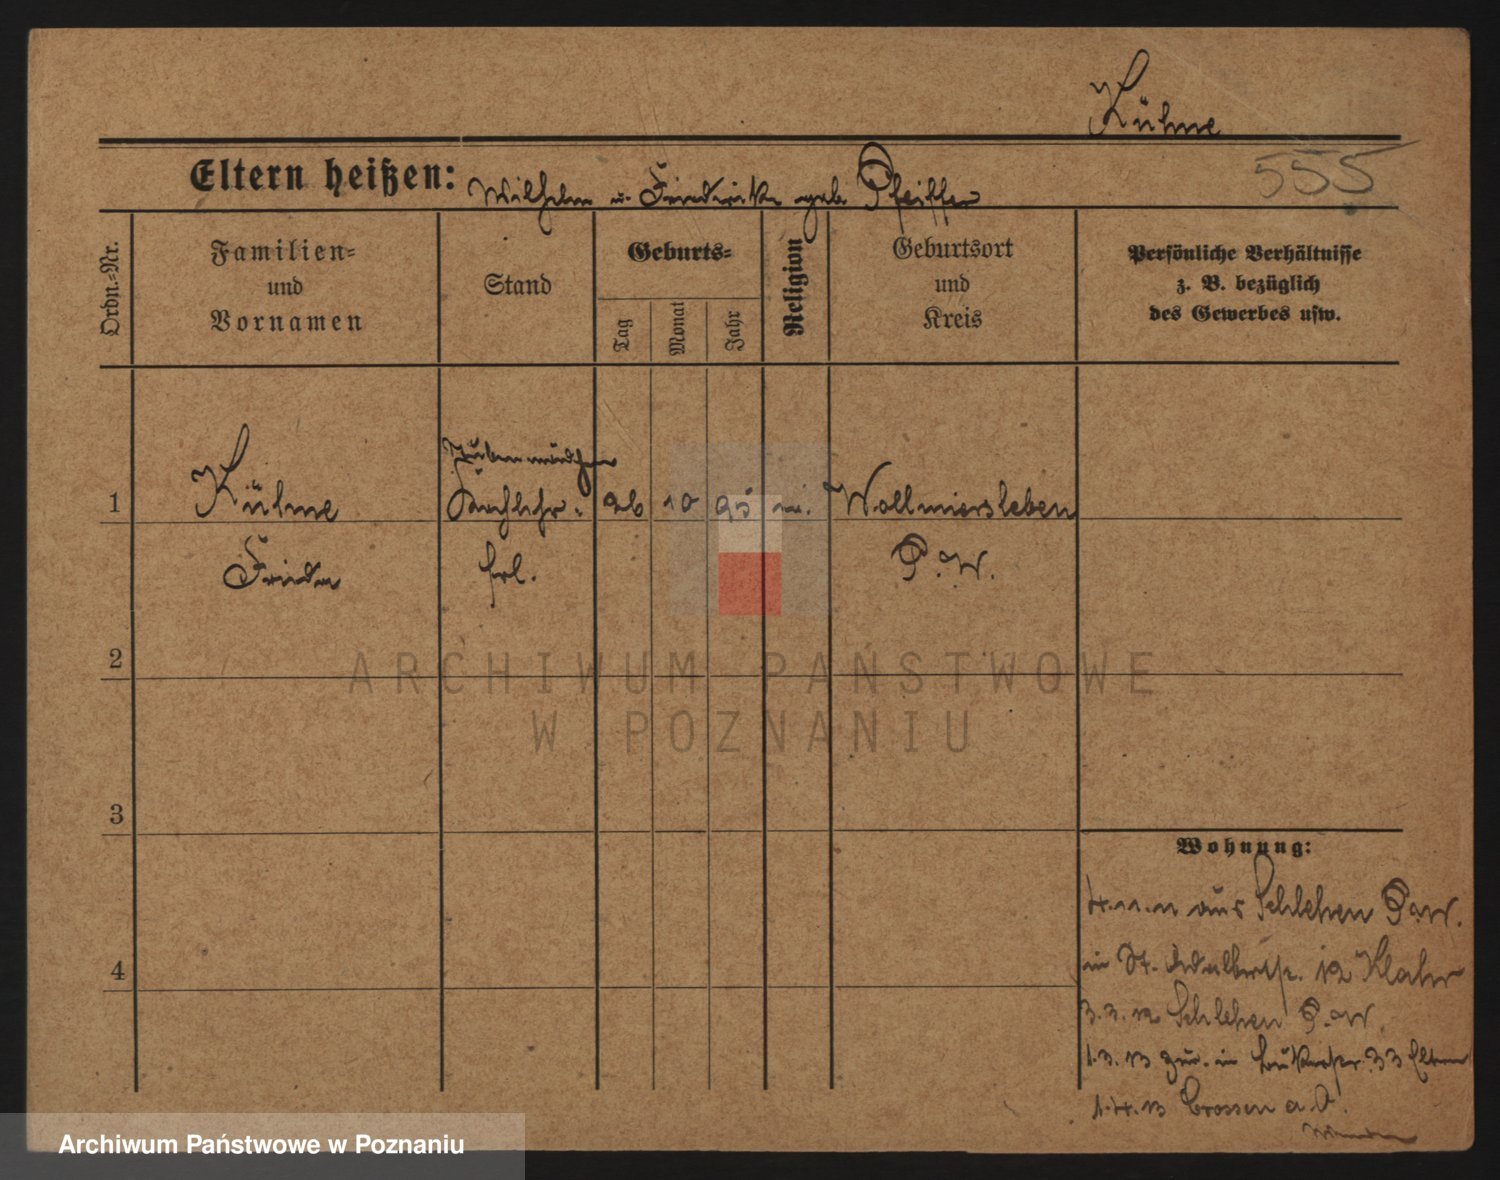 Kühne
555
Eltern heißen: Wilhelm u. Friederike geb. Pfeiffer
Ordn.-Nr.
Familien-
und
Vornamen
Stand
Geburts-
Tag
Monat
Jahr
Religion
Geburtsort
und
Kreis
Persönliche Verhältnisse
z. B. bezüglich
des Gewerbes usw.
Stubenmädchen
1 Kühne 26 10 95 Wollmirsleben
Frieda frl. P. W.
2
3
4
Wohnung:
4.11.11 aus Schlehen P. W.
in St. Adalbertstr. 12 Klahr
3.3.12 Schlehen P. W.
1.3.13 zur. in 33 Eltern
1.4.13 Crossen a. O.
ARCHIWUM PAŃSTWOWE
W POZNANIU
Archiwum Państwowe w Poznaniu